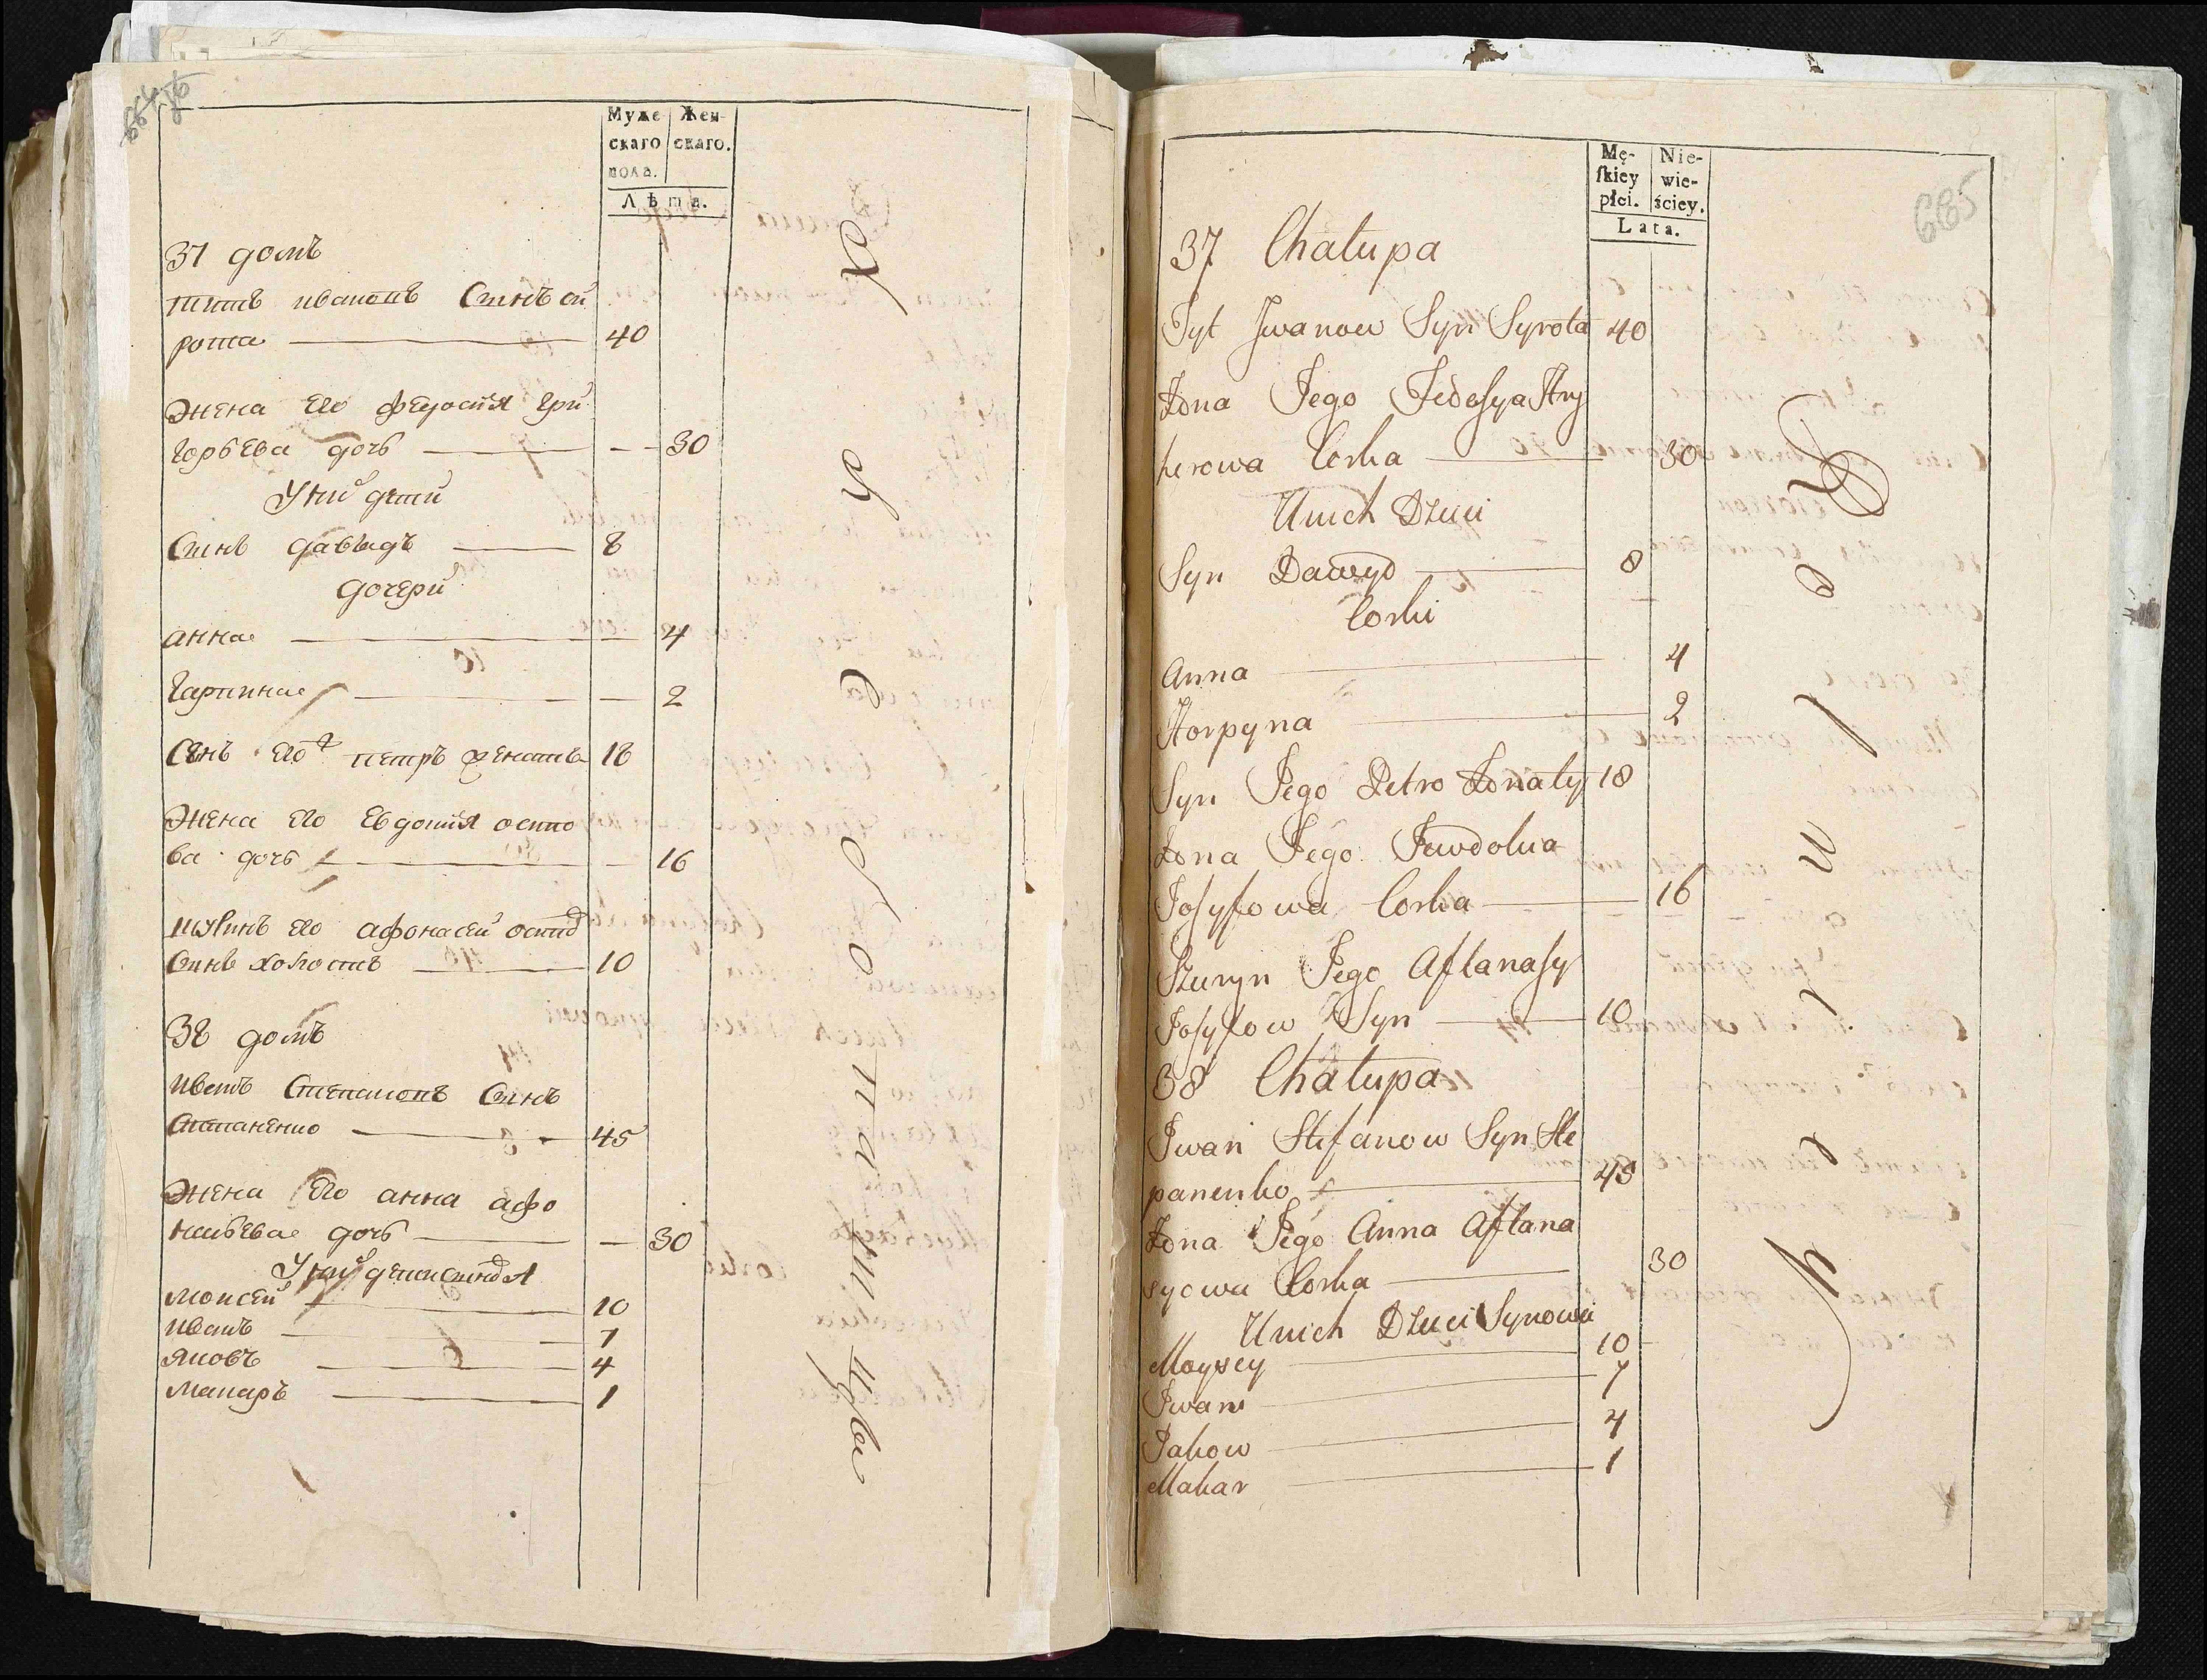 664
Муже
скаго
пола.
Жен-
скаго.
Лѣта.
37 домъ
титъ ивановъ Сынъ си
рота 40
жена его федосия гри
горьева дочь 30
У них дети
Сынъ давыдъ 8
дочери
анна 4
гарпина 2
Сынъ его петръ женатъ 18
жена его Евдокия осипо
ва дочь 16
шуринъ его афонасей осипов
Сынъ холостъ 10
38 домъ
иванъ Степановъ Сынъ
Степаненко 45
жена его анна афо
насьева дочь 30
У них дети Сыновья
моисей 10
иванъ 7
яковъ 4
макаръ 1
685
Mę-
skiey
płci.
Nie-
wie-
ściey.
Lata.
37 Chałupa
Tyt Jwanow Syn Syrota 40
Żona Jego Fedosya Hry
horowa Corka 30
U nich Dzieci
Syn Dawyd 8
Corki
Anna 4
Horpyna 2
Syn Jego Petro Żonaty 18
Żona Jego Jewdokia
Josyfowa Corka 16
Szuryn Jego Aftanasy
Josyfow Syn 10
38 Chałupa
Jwan Stefanow Syn Ste
panenko 45
Żona Jego Anna Aftana
syowa Corka 30
U nich Dzieci Synowie
Moysey 10
Jwan 7
Jakow 4
Makar 1